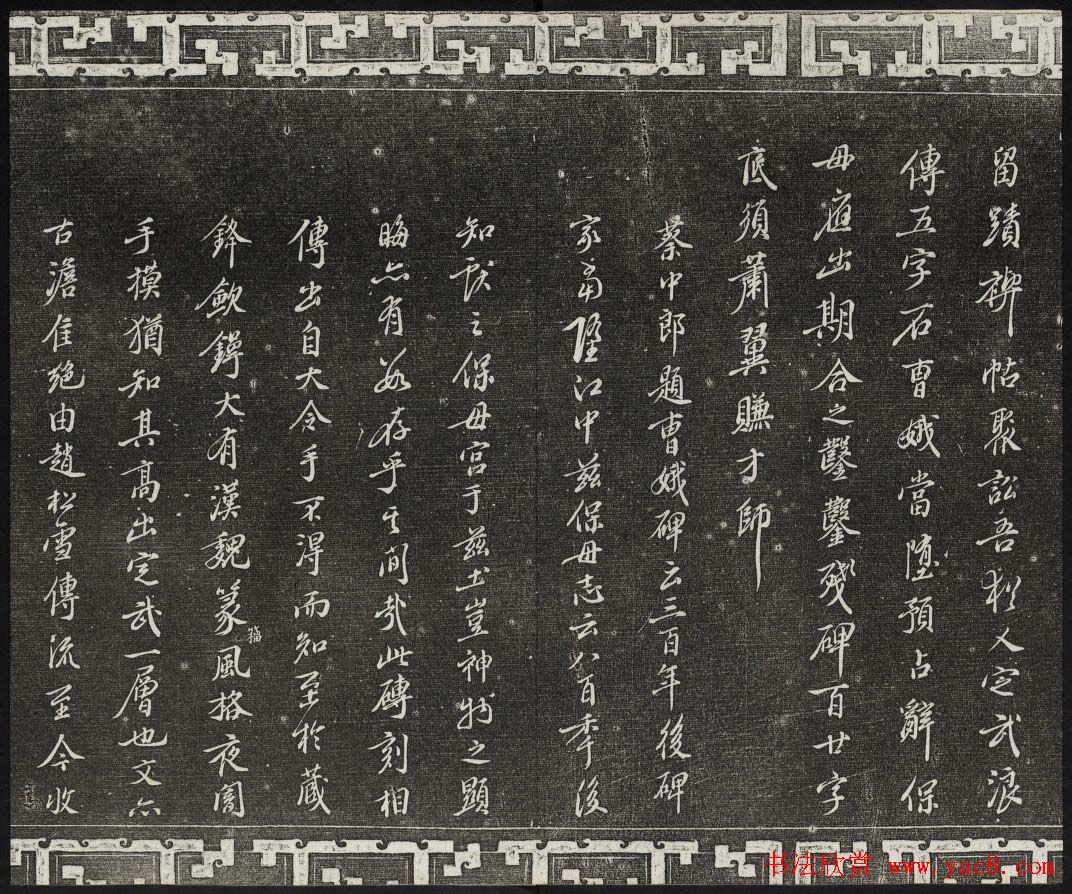 留蹟禊帖聚訟吾猶人定武浪
傳五字石曹娥當墮預占辭保
母應出期合之鑿鑿殘碑百廿字
底須蕭翼賺才師
蔡中郎題曹娥碑云三百年後碑
冢當墮江中茲保母志云八百季後
知獻之保母宮于茲土豈神物之顯
晦亦有數存乎其間哉此磚刻相
傳出自大令手不得而知至於藏
鋒斂鍔大有漢魏篆籀風格夜闇
手摸猶知其高出定武一層也文亦
古澹佳絕由趙松雪傳流至今收
书法欣赏 www.yac8.com